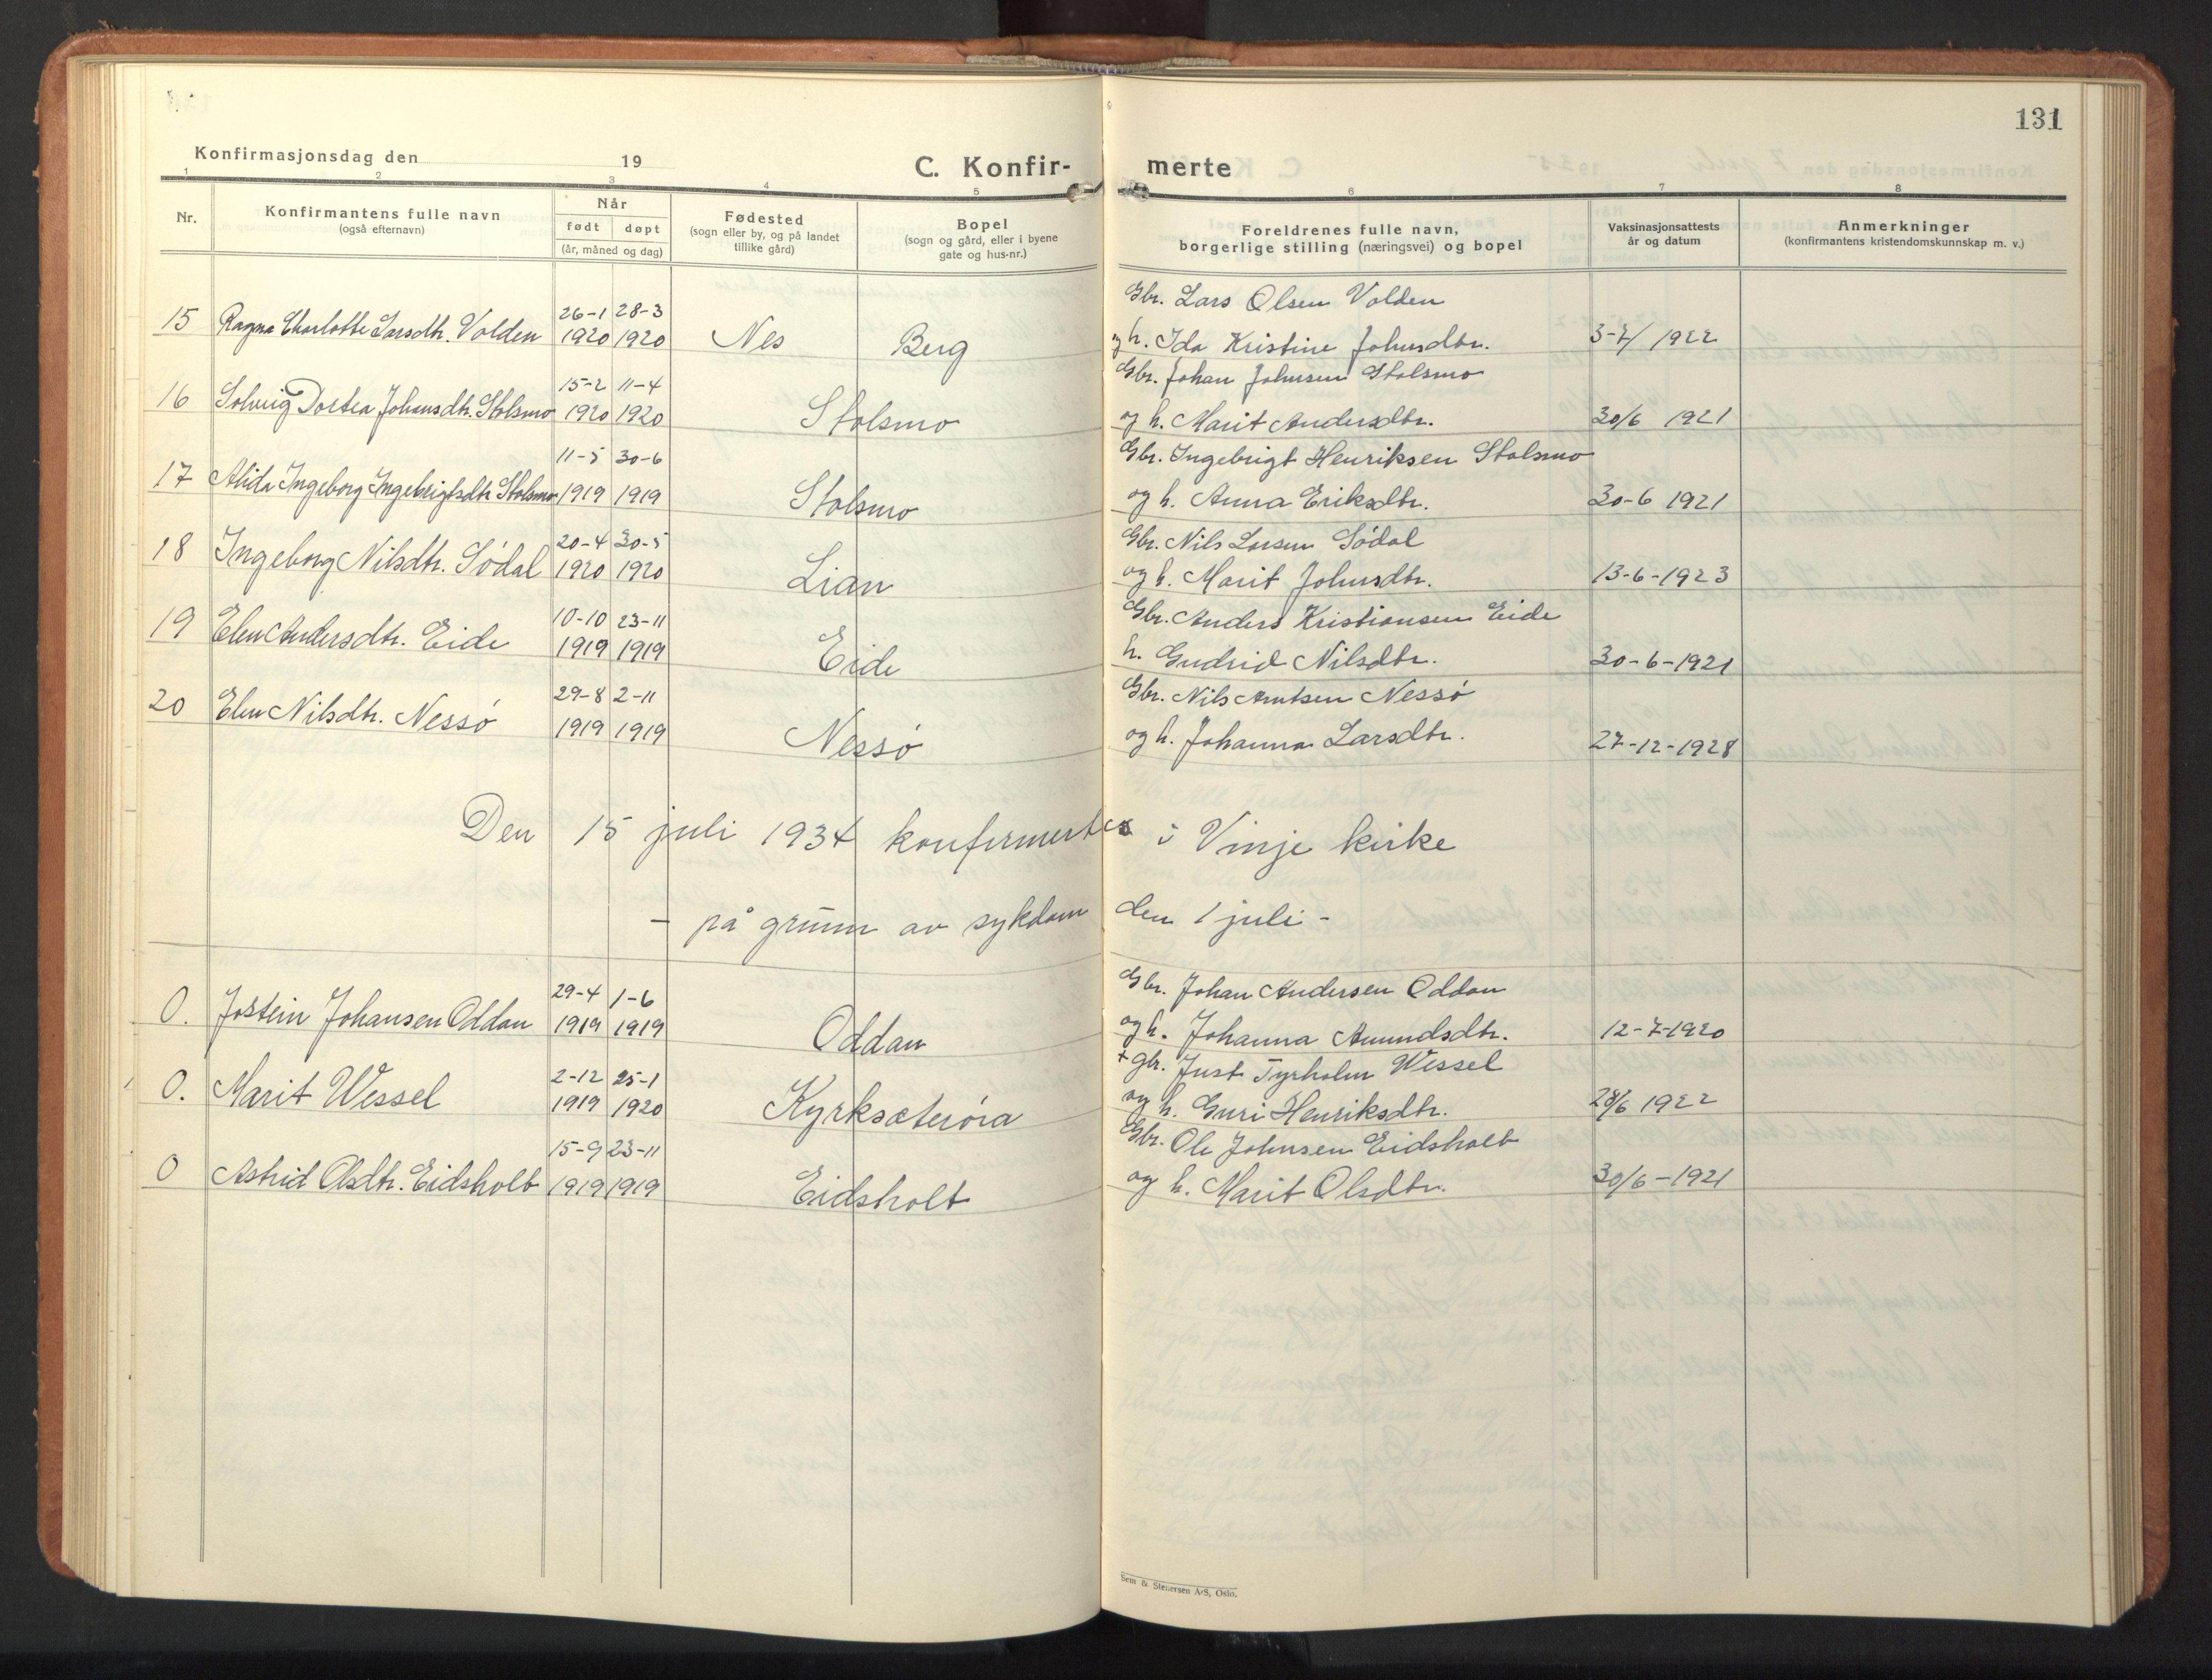 131
Konfirmasjonsdag den 19
C. Konfir- merte
1 2 3 4 5 6 7 8
Nr.
Konfirmantens fulle navn
(også efternavn)
Når
født døpt
(år, måned og dag)
Fødested
(sogn eller by, og på landet
tillike gård)
Bopel
(sogn og gård, eller i byene
gate og hus-nr.)
Foreldrenes fulle navn,
borgerlige stilling (næringsvei) og bopel
Vaksinasjonsattests
år og datum
Anmerkninger
(konfirmantens kristendomskunnskap m. v.)
26-1 28-3 Gbr. Lars Olsen Volden
15 Ragna Charlotte Larsdtr. Volden 1920 1920 Nes Berg og h. Ida Kristine Johnsdtr. 1922
15-2 11-4 Gbr. Johan Johnsen Stolsmo
16 Solveig Dortea Johansdtr. Stolsmo 1920 1920 Stolsmo og h. Marit Andersdtr. 30/6 1921
11-5 30-6 Gbr. Ingebrigt Henriksen Stolsmo
17 Alida Ingeborg Ingebrigtsdtr Stolsmo 1919 1919 Stolsmo og h. Anna Eriksdtr. 30-6 1921
20-4 30-5 Gbr. Nils Larsen Södal
18 Ingeborg Nilsdtr. Södal 1920 1920 Lian og h. Marit Johnsdtr. 13-6-1923
10-10 23-11 Gbr. Anders Kristiansen Eide
19 Elen Andersdtr. Eide 1919 1919 Eide h. Gudrid Nilsdtr. 30-6-1921
29-8 2-11 Gbr. Nils Arntsen Nessö
20 Elen Nilsdtr. Nessö 1919 1919 Nessö og h. Johanna Larsdtr. 27-12-1928
Den 15 juli 1934 konfirmertes i Vinje kirke
- på grunn av sykdom den 1 juli -
29-4 1-6 Gbr. Johan Andersen Oddan
0. Jostein Johansen Oddan 1919 1919 Oddan og h. Johanna Amundsdtr. 12-7-1920
2-12 25-1 + gbr. Just Tyrholm Wessel
0. Marit Wessel 1919 1920 Kyrksæterøra og h. Guri Henriksdtr. 28/6 1922
15-9 23-11 Gbr. Ole Johnsen Eidsholt
0 Astrid Olsdtr. Eidsholt 1919 1919 Eidsholt og h. Marit Olsdtr. 30/6-1921
Sem & Stenersen A/S, Oslo.